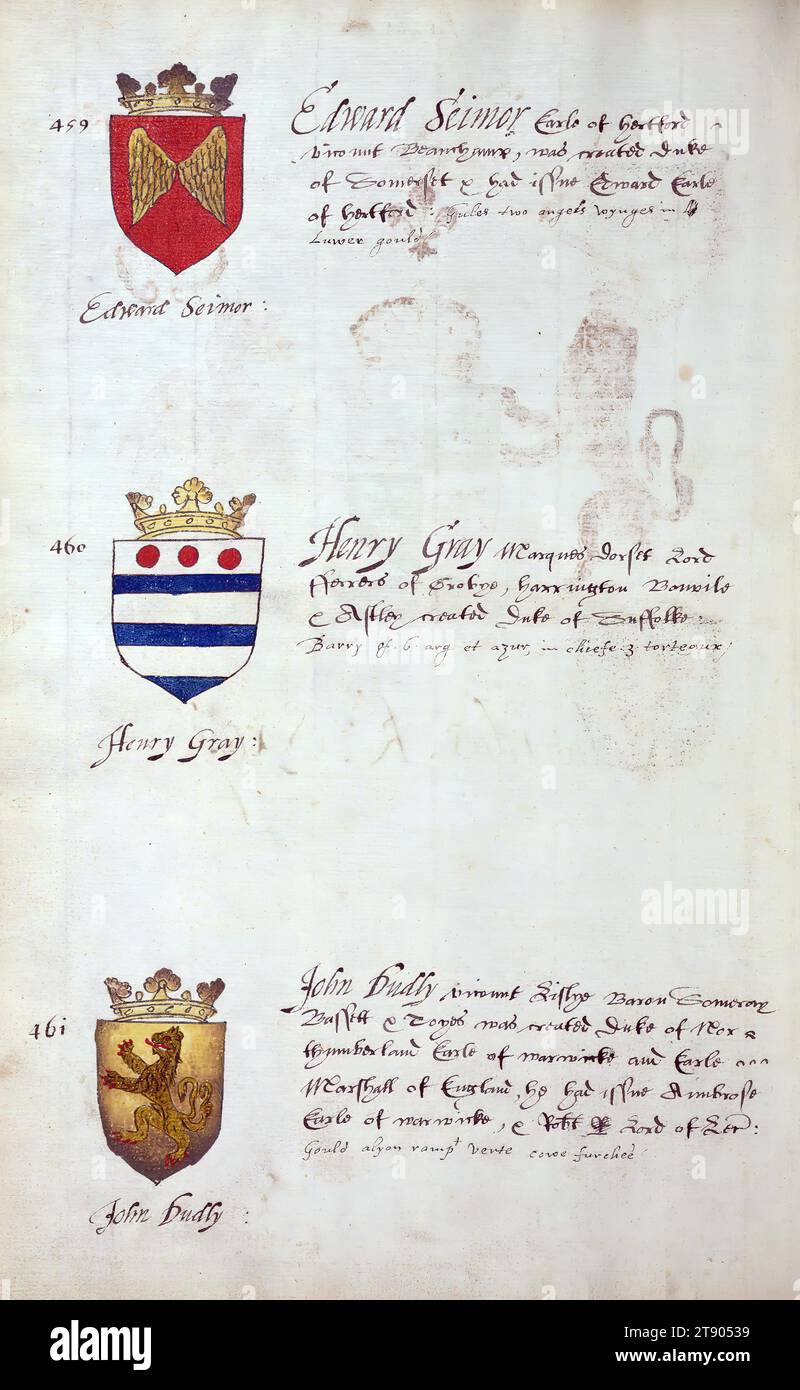 459
Edward Seimor Earle of Hertford
vicount Beauchaux, was created Duke
of Somerset & had issue Edward Earle
of hertford: Gules two angels wynges in
Luwer gould
Edward Seimor:
460
Henry Gray Marques dorset Lord
fferrers of Grobye, harrington Bonvile
& Astley created Duke of Suffolke:
Barry of .6. arg et azur, in chiefe .3. torteaux;
Henry Gray:
461
John Dudly vicount Lislye Baron Someray
Bassett & Toyes was created Duke of Nor
thumberland Earle of warwicke and Earle
Marshall of England, he had issue Ambrose
Earle of warwicke, & Robt Lord of Lec:
Gould a lyon rampt verte cowe furchee
John Dudly:
alamy
alamy
a
alamy
Image ID: 2T90539
www.alamy.com